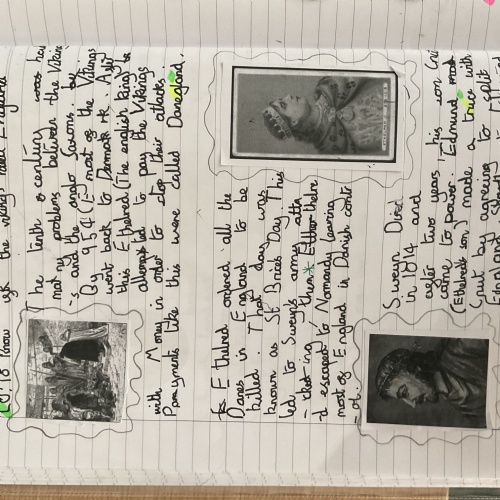 LO: To know if the vikings ruled England
The Tenth century was hav
many problems between the Vikin
s and the anglo Saxons.
By 954 CE most of the Vikings
went back to Denmark
this Ethelred (The english king)
attempted to pay the Vikings
with Money in order to stop their attacks
Pamyments like this were called Danegland.
Ethelred ordered all the
Danes in England to be
killed. That day was
known as St Brices Day This
led to Sweyn's army atta
-cked-ing them
d escaped to Normandy leaving
most of England in Danish contr
-ol.
Sweyn Died
in 1014 and
after two years, his son Cnu
came to power. Edmund
(Ethelreds son) made a trice with
Cnut by agreeing to split
England